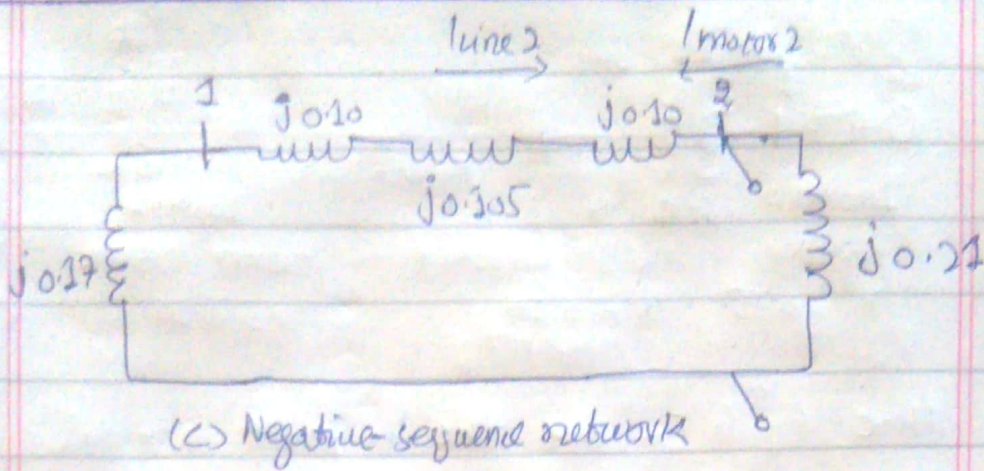 Iline2
Imotor2
1
j0.10
j0.10
2
j0.105
j0.17
j0.21
(c) Negative-sequence network